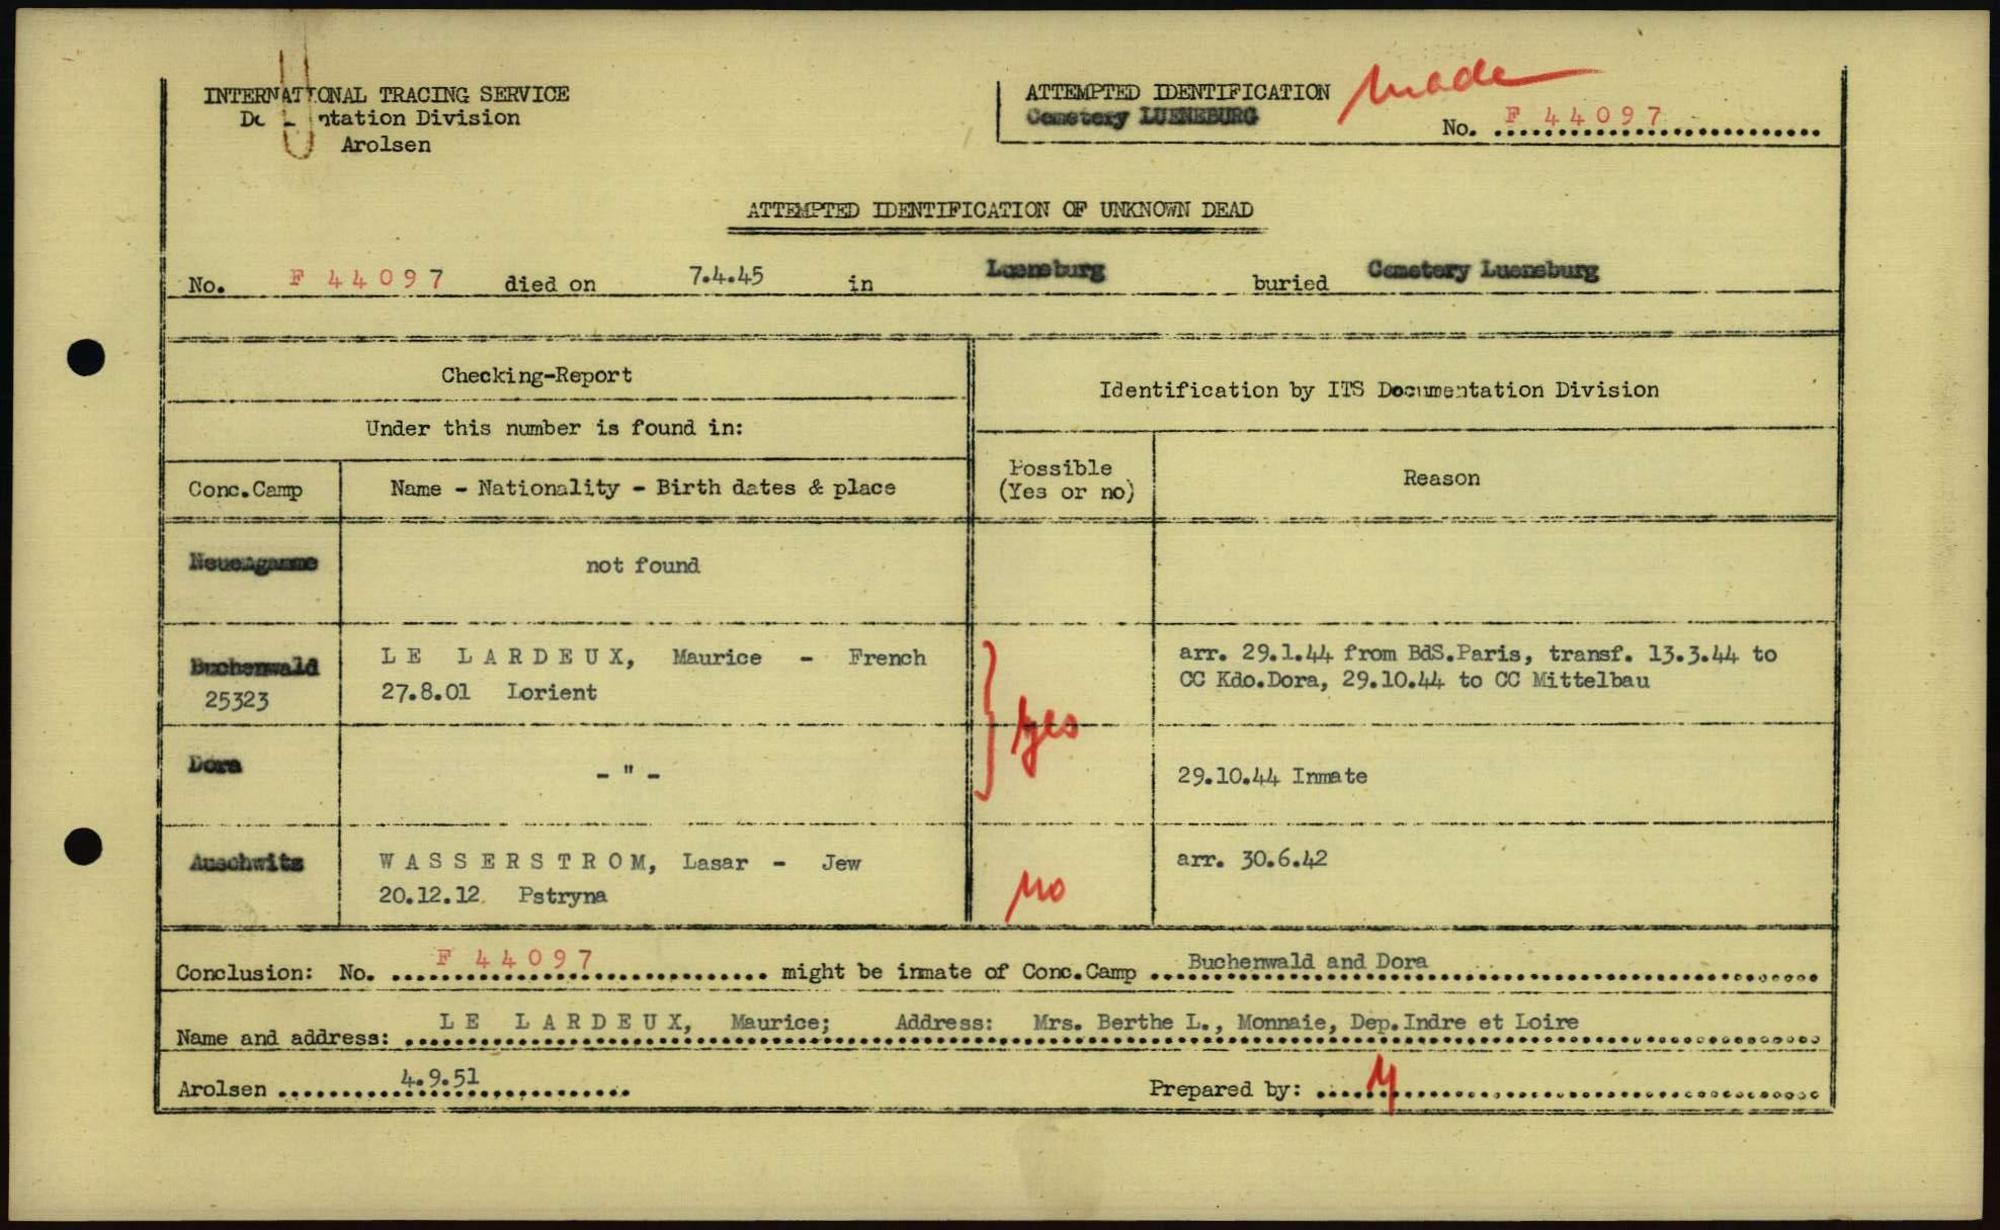 INTERNATIONAL TRACING SERVICE
Documentation Division
Arolsen
ATTEMPTED IDENTIFICATION made
Cemetery LUENEBURG
No. F 44097
ATTEMPTED IDENTIFICATION OF UNKNOWN DEAD
No. F 44097 died on 7.4.45 in Lueneburg buried Cemetery Lueneburg
Checking-Report
Identification by ITS Documentation Division
Under this number is found in:
Conc.Camp Name - Nationality - Birth dates & place Possible (Yes or no) Reason
Neuengamme not found
Buchenwald LE LARDEUX, Maurice - French arr. 29.1.44 from BdS.Paris, transf. 13.3.44 to
25323 27.8.01 Lorient CC Kdo.Dora, 29.10.44 to CC Mittelbau
yes
Dora - " - 29.10.44 Inmate
Auschwitz WASSERSTROM, Lasar - Jew no arr. 30.6.42
20.12.12 Pstryna
Conclusion: No. F 44097 might be inmate of Conc.Camp Buchenwald and Dora
Name and address: LE LARDEUX, Maurice; Address: Mrs. Berthe L., Monnaie, Dep.Indre et Loire
Arolsen 4.9.51 Prepared by: